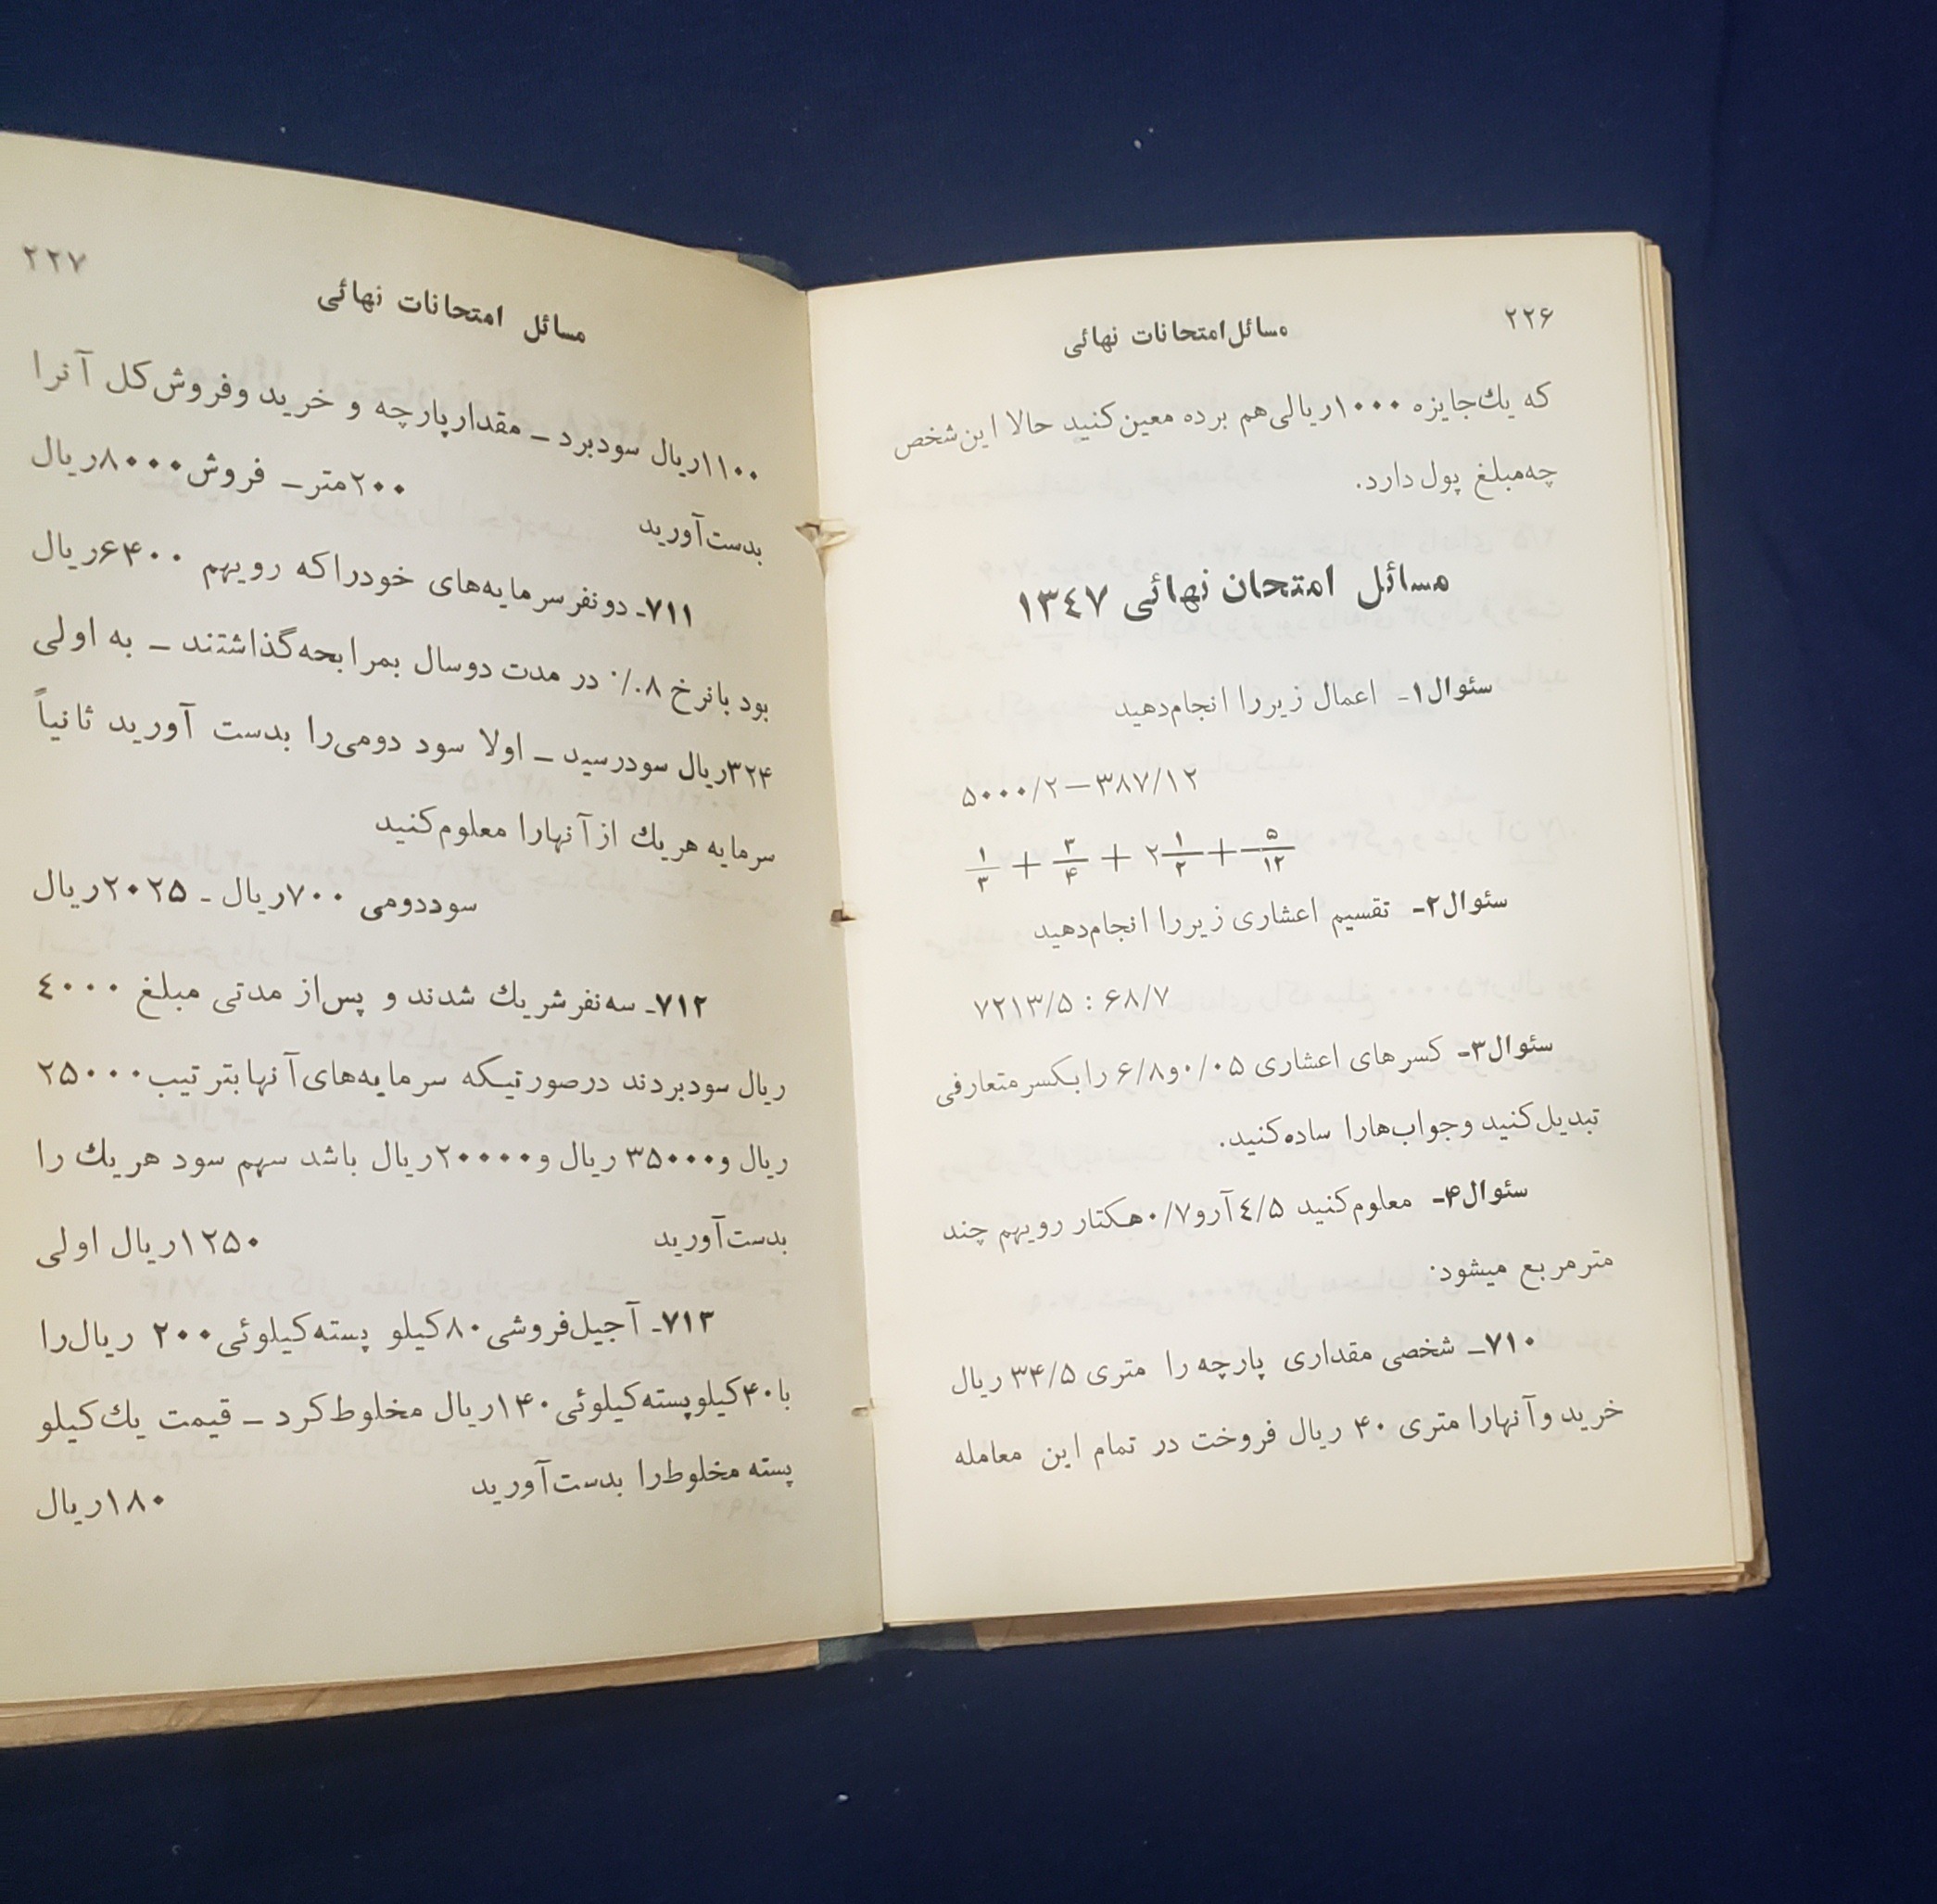 ۲۲۶
مسائل امتحانات نهائی
که یك جایزه ۱۰۰۰ریالی هم برده معین کنید حالا این شخص
چه مبلغ پول دارد.
مسائل امتحان نهائی ۱۳۴۷
سئوال۱- اعمال زیر را انجام دهید
۵۰۰۰/۲ — ۳۸۷/۱۲
۱/۳ + ۳/۴ + ۲ ۱/۲ + ۵/۱۲
سئوال۲- تقسیم اعشاری زیر را انجام دهید
۷۲۱۳/۵ : ۶۸/۷
سئوال۳- کسرهای اعشاری ۰/۰۵و۶/۸ را بکسر متعارفی
تبدیل کنید و جواب‌ها را ساده کنید.
سئوال۴- معلوم کنید ۴/۵ آرو۰/۷هکتار رویهم چند
متر مربع میشود.
۷۱۰ــ شخصی مقداری پارچه را متری ۳۴/۵ ریال
خرید و آنها را متری ۴۰ ریال فروخت در تمام این معامله
۲۲۷
مسائل امتحانات نهائی
۱۱۰۰ریال سود برد ــ مقدار پارچه و خرید و فروش کل آنرا
بدست آورید ۲۰۰متر ــ فروش ۸۰۰۰ریال
۷۱۱ـ دو نفر سرمایه‌های خود را که رویهم ۶۴۰۰ریال
بود با نرخ ۸٪ در مدت دو سال بمرابحه گذاشتند ــ به اولی
۳۲۴ریال سود رسید ــ اولا سود دومی را بدست آورید ثانیاً
سرمایه هریك از آنها را معلوم کنید
سود دومی ۷۰۰ریال ـ ۲۰۲۵ریال
۷۱۲ـ سه نفر شریك شدند و پس از مدتی مبلغ ۴۰۰۰
ریال سود بردند در صورتیکه سرمایه‌های آنها بترتیب ۲۵۰۰۰
ریال و ۳۵۰۰۰ ریال و ۲۰۰۰۰ریال باشد سهم سود هریك را
بدست آورید ۱۲۵۰ریال اولی
۷۱۳ـ آجیل فروشی ۸۰کیلو پسته کیلوئی ۲۰۰ ریال را
با ۴۰ کیلو پسته کیلوئی ۱۴۰ریال مخلوط کرد ــ قیمت یك کیلو
پسته مخلوط را بدست آورید ۱۸۰ریال